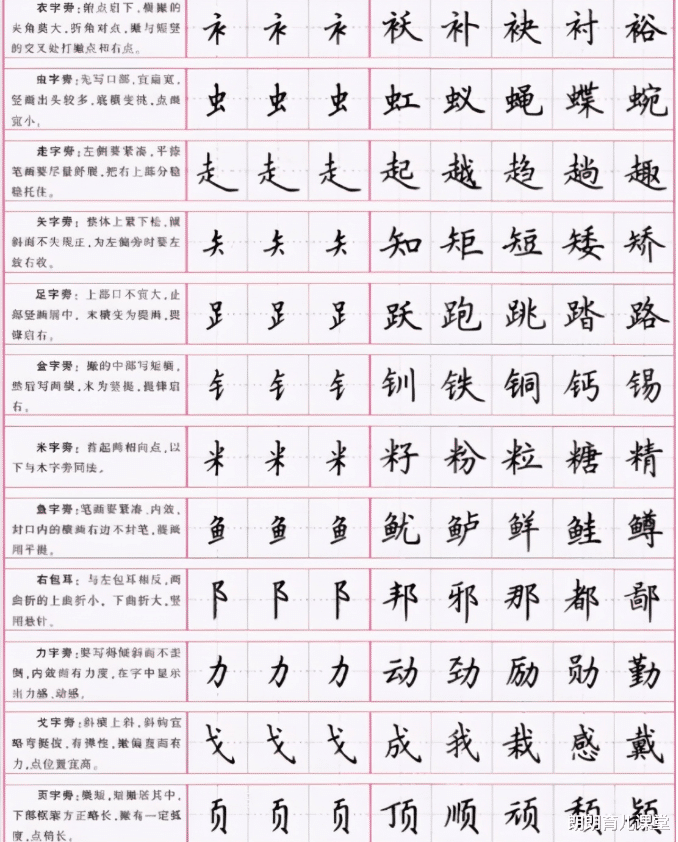 衣字旁：俯点启下，横撇的 衤 衤 衤 袄 补 袂 衬 裕
夹角莫大，折角对点，撇与短竖
的交叉处打撇点和右点。
虫字旁：先写口部，宜扁宽， 虫 虫 虫 虹 蚁 蝇 蝶 蜿
竖画出头较多，底横变挑，点画
宜小。
走字旁：左侧要紧凑，平捺 走 走 走 起 越 趋 趟 趣
笔画要尽量舒展，把右上部分稳
稳托住。
矢字旁：整体上紧下松，倾 矢 矢 矢 知 矩 短 矮 矫
斜而不失规正，为左偏旁时要左
放右收。
足字旁：上部口不宜大，止 𧾷 𧾷 𧾷 跃 跑 跳 踏 路
部竖画居中，末横变为提画，提
锋启右。
金字旁：撇的中部写短横， 钅 钅 钅 钏 铁 铜 钙 锡
然后写两横，末为竖提，提锋启
右。
米字旁：首起两相向点，以 米 米 米 籽 粉 粒 糖 精
下与木字旁同法。
鱼字旁：笔画要紧凑、内敛， 鱼 鱼 鱼 鱿 鲈 鲜 鲑 鳟
封口内的横画右边不封笔，底画
用平提。
右包耳：与左包耳相反，两 阝 阝 阝 邦 邪 那 都 鄙
曲折的上曲折小，下曲折大，竖
用悬针。
力字旁：要写得倾斜而不歪 力 力 力 动 劲 励 勋 勤
倒，内敛而有力度，在字中显示
出力感、动感。
戈字旁：斜横上斜，斜钩宜 戈 戈 戈 成 我 栽 感 戴
略弯挺拔，有弹性，撇偏直而有
力，点位置宜高。
页字旁：横短，短撇居其中， 页 页 页 顶 顺 顽 颓 颖
下部框架方正略长，撇有一定弧
度，点稍长。
朗朗育儿课堂